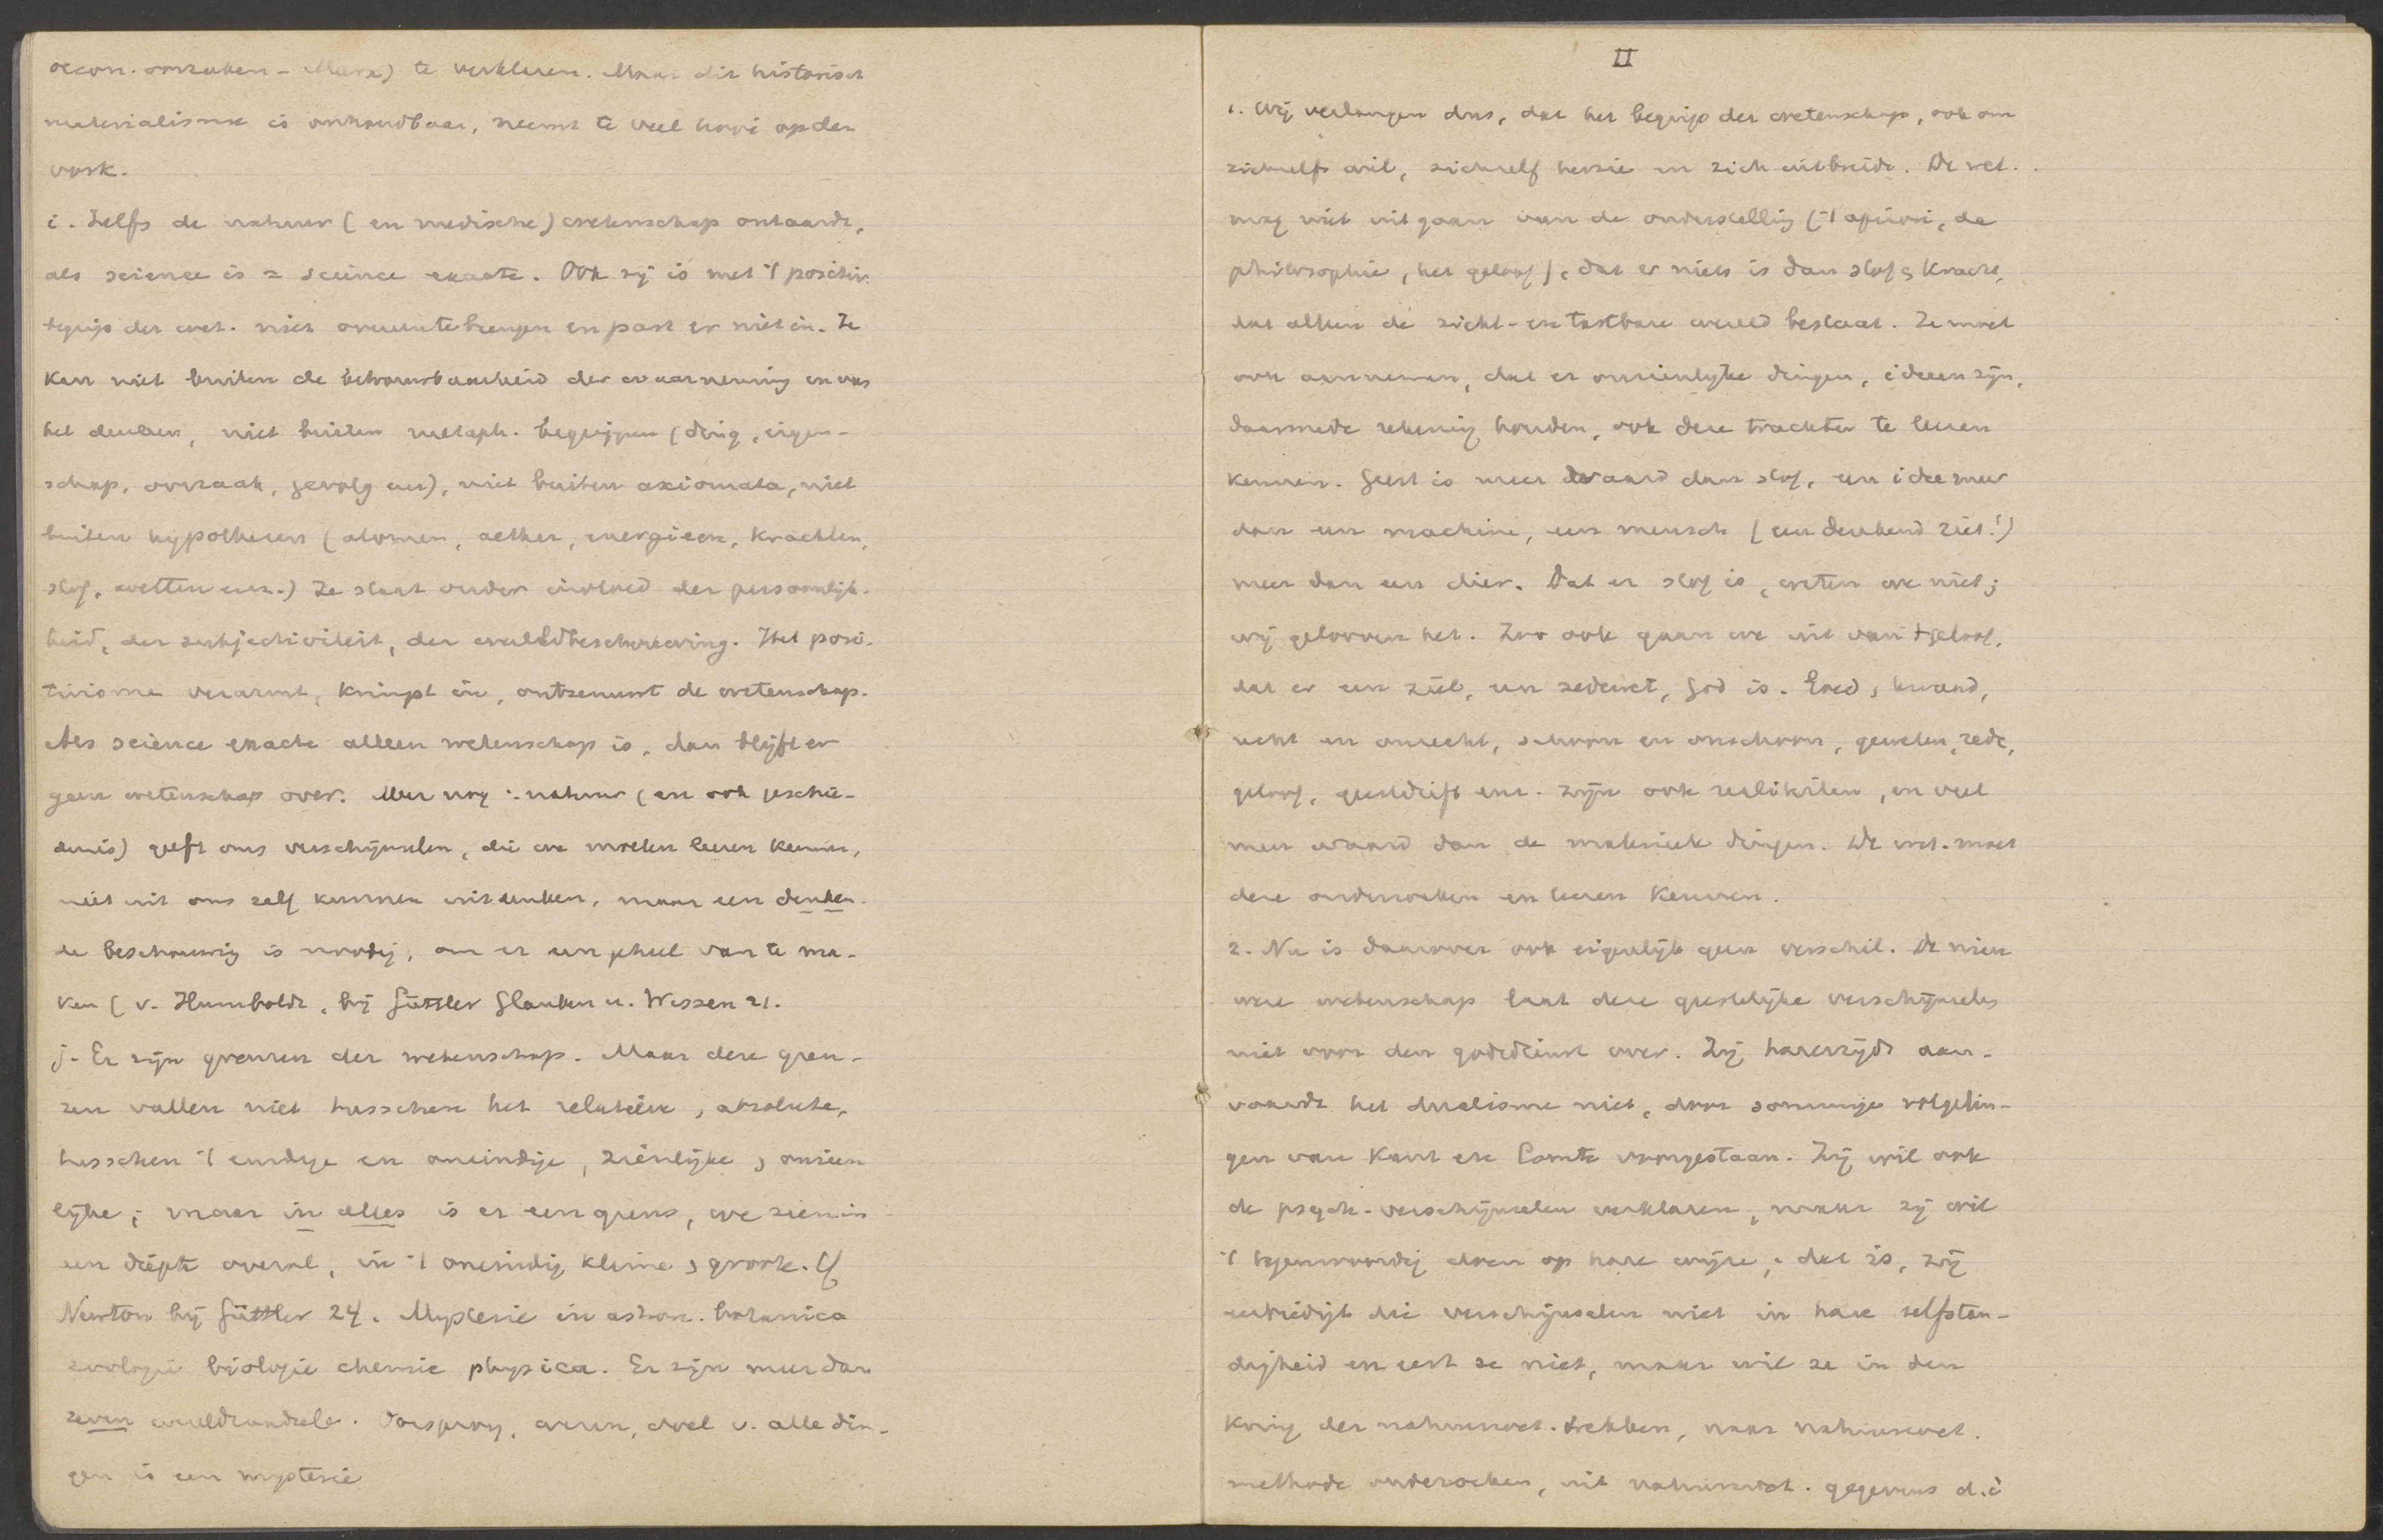 oecon. oorzaken - Marx) te verklaren. Maar dit historisch
materialisme is onhoudbaar, neemt te veel hooi op den
vork.
i. Zelfs de natuur (en medische) wetenschap ontaardt,
als science is = science exacte. Ook zij is met 't positiv.
begrip der wet. niet overeentebrengen en past er niet in. Ze
kan niet buiten de betrouwbaarheid der waarneming en van
het denken, niet buiten metaph. begrippen (ding, eigen-
schap, oorzaak, gevolg enz), niet buiten axiomata, niet
buiten hypothesen (atomen, aether, energieen, krachten,
stof, wetten enz.) Ze staat onder invloed der persoonlijk-
heid, der subjectiviteit, der wereldbeschouwing. Het posi-
tivisme verarmt, krimpt in, ontzenuwt de wetenschap.
Als science exacte alleen wetenschap is, dan blijft er
geen wetenschap over. Meer nog: natuur (en ook geschie-
denis) geeft ons verschijnselen, die we moeten leeren kennen,
niet uit ons zelf kunnen uitdenken, maar een denken-
de beschouwing is noodig, om er een geheel van te ma-
ken (v. Humboldt, bij Güttler Glauben u. Wissen 21.
j. Er zijn grenzen der wetenschap. Maar deze gren-
zen vallen niet tusschen het relatieve, absolute,
tusschen 't eindige en oneindige, zienlijke, onzien
lijke; maar in alles is er een grens, we zien in
een diepte overal, in 't oneindig kleine, groote. Cf
Newton bij Güttler 24. Mysterie in astron. botanica
zoologie biologie chemie physica. Er zijn meer dan
zeven wereldraadsels. Oorsprong, wezen, doel v. alle din-
gen is een mysterie
II
1. Wij verlangen dus, dat het begrip der wetenschap, ook om
zichzelfs wil, zichzelf herzie en zich uitbreide. De wet.
mag niet uitgaan van de onderstelling ('t apriori, de
philosophie, het geloof), dat er niets is dan stof, kracht,
dat alleen de zicht- en tastbare wereld bestaat. Ze moet
ook aannemen, dat er onzienlijke dingen, ideeen zijn,
daarmede rekening houden, ook deze trachten te leeren
kennen. Geest is meer waard dan stof, een idee meer
dan een machine, een mensch (een denkend riet!)
meer dan een dier. Dat er stof is, weten we niet;
wij gelooven het. Zoo ook gaan we uit van 't geloof,
dat er een ziel, een zedewet, God is. Goed, kwaad,
recht en onrecht, schoon en onschoon, geweten, rede,
geloof, geestdrift enz. zijn ook realiteiten, en veel
meer waard dan de materieele dingen. De wet. moet
deze onderzoeken en leeren kennen.
2. Nu is daarover ook eigenlijk geen verschil. De nieu
we wetenschap laat deze geestelijke verschijnselen
niet voor den godsdienst over. Zij harerzijds aan-
vaardt het dualisme niet, door sommige volgelin-
gen van Kant en Comte voorgestaan. Zij wil ook
de psych. verschijnselen verklaren, maar zij wil
't tegenwoordig doen op hare wijze, dat is, zij
eerbiedigt die verschijnselen niet in hare zelfstan-
digheid en eert ze niet, maar wil ze in den
kring der natuurwet. trekken, naar natuurwet.
methode onderzoeken, uit natuurwet. gegevens d.i